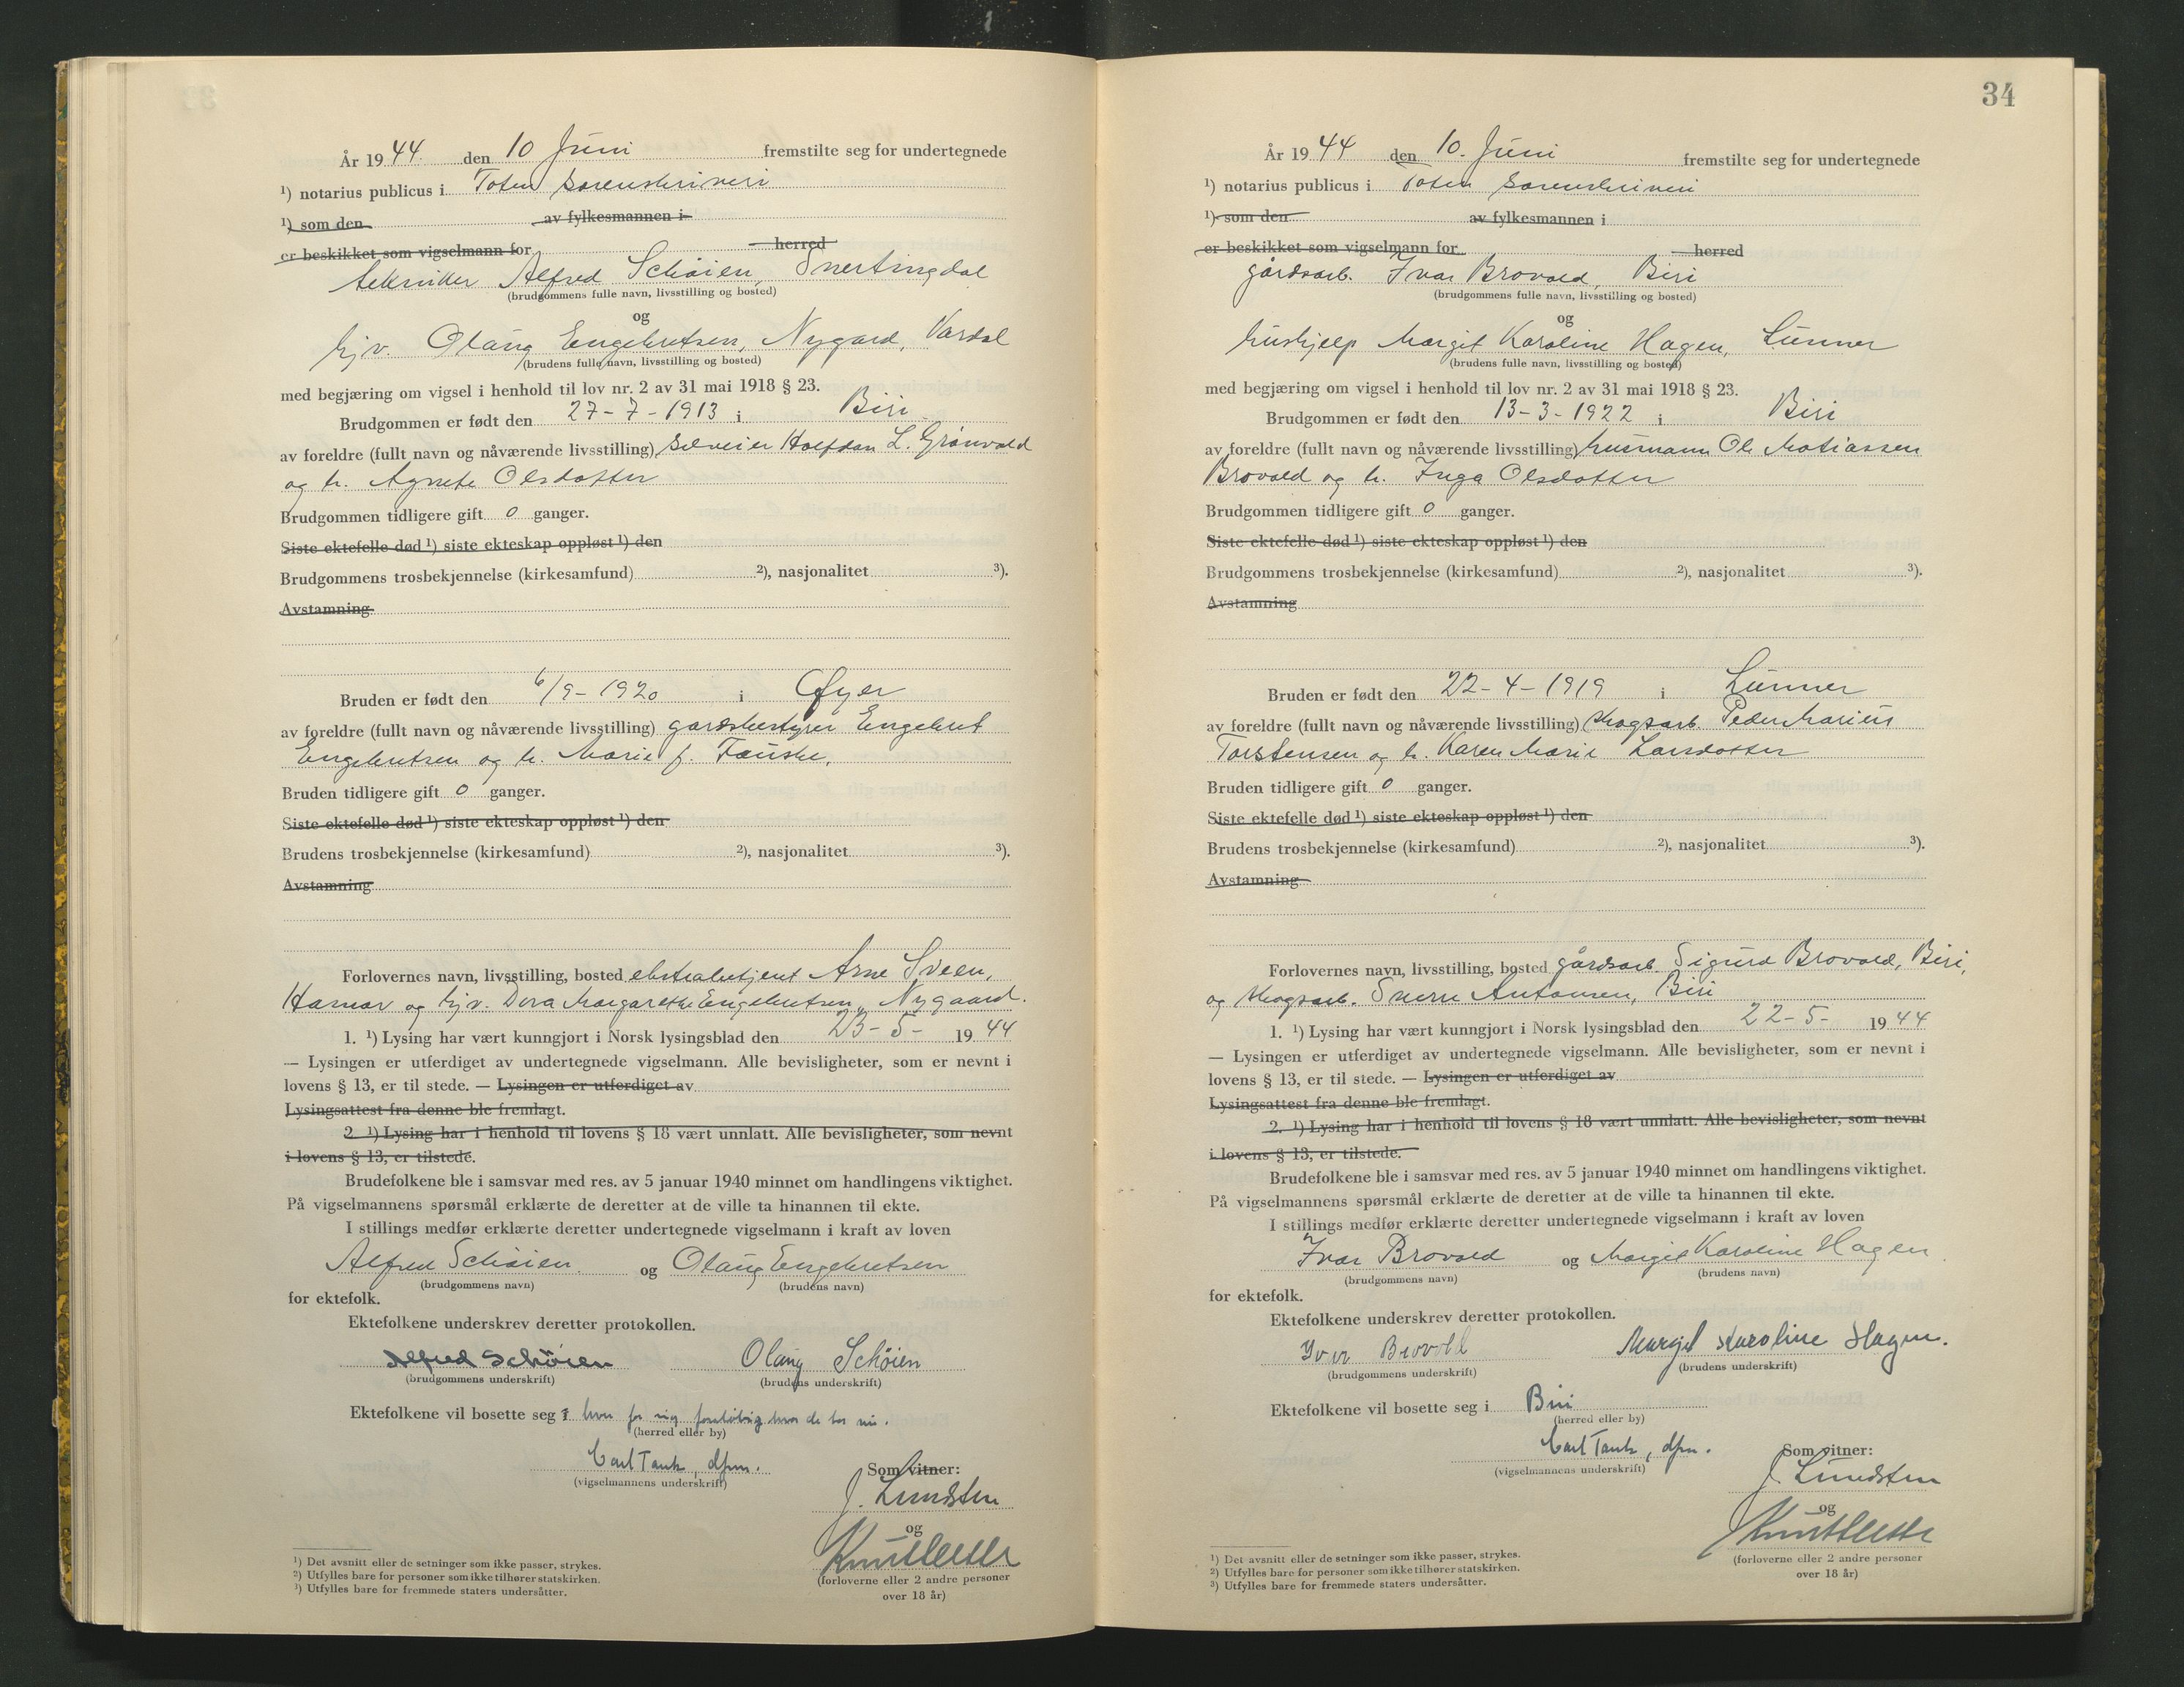 År 1944 den 10 Juni fremstilte seg for undertegnede
¹) notarius publicus i Toten sorenskriveri
¹) som den av fylkesmannen i
er beskikket som vigselmann for herred
tekniker Alfred Schøien, Snertingdal
(brudgommens fulle navn, livsstilling og bosted)
og
hjv. Olaug Engebretsen, Nygard, Vardal
(brudens fulle navn, livsstilling og bosted)
med begjæring om vigsel i henhold til lov nr. 2 av 31 mai 1918 § 23.
Brudgommen er født den 27-7-1913 i Biri
av foreldre (fullt navn og nåværende livsstilling) selveier Halfdan L. Grønvold
og h. Agnete Olsdotter
Brudgommen tidligere gift 0 ganger.
Siste ektefelle død ¹) siste ekteskap oppløst ¹) den
Brudgommens trosbekjennelse (kirkesamfund) ²), nasjonalitet ³).
Avstamning
Bruden er født den 6/9-1920 i Øyer
av foreldre (fullt navn og nåværende livsstilling) gardsbestyrer Engebret
Engebretsen og h. Marie f. Fauske.
Bruden tidligere gift 0 ganger.
Siste ektefelle død ¹) siste ekteskap oppløst ¹) den
Brudens trosbekjennelse (kirkesamfund) ²), nasjonalitet ³).
Avstamning
Forlovernes navn, livsstilling, bosted ekstrabetjent Arne Sveen,
Hamar og hjv. Dora Margarethe Engebretsen, Nygaard.
1. ¹) Lysing har vært kunngjort i Norsk lysingsblad den 23-5- 1944
— Lysingen er utferdiget av undertegnede vigselmann. Alle bevisligheter, som er nevnt i
lovens § 13, er til stede. — Lysingen er utferdiget av
Lysingsattest fra denne ble fremlagt.
2. ¹) Lysing har i henhold til lovens § 18 vært unnlatt. Alle bevisligheter, som nevnt
i lovens § 13, er tilstede.
Brudefolkene ble i samsvar med res. av 5 januar 1940 minnet om handlingens viktighet.
På vigselmannens spørsmål erklærte de deretter at de ville ta hinannen til ekte.
I stillings medfør erklærte deretter undertegnede vigselmann i kraft av loven
Alfred Schøien og Olaug Engebretsen
(brudgommens navn) (brudens navn)
for ektefolk.
Ektefolkene underskrev deretter protokollen.
Alfred Schöien Olaug Schöien
(brudgommens underskrift) (brudens underskrift)
Ektefolkene vil bosette seg i hver for sig foreløbig hvor de bor nu.
(herred eller by)
Carl Tank, dfm.
(vigselmannens underskrift)
Som vitner:
J. Lundsten
og
(forloverne eller 2 andre personer
over 18 år)
¹) Det avsnitt eller de setninger som ikke passer, strykes.
²) Utfylles bare for personer som ikke tilhører statskirken.
³) Utfylles bare for fremmede staters undersåtter.
34
År 1944 den 10. Juni fremstilte seg for undertegnede
¹) notarius publicus i Toten sorenskriveri
¹) som den av fylkesmannen i
er beskikket som vigselmann for herred
gårdsarb. Ivar Brovold, Biri
(brudgommens fulle navn, livsstilling og bosted)
og
hushjelp Margit Karoline Hagen, Lunner
(brudens fulle navn, livsstilling og bosted)
med begjæring om vigsel i henhold til lov nr. 2 av 31 mai 1918 § 23.
Brudgommen er født den 13-3-1922 i Biri
av foreldre (fullt navn og nåværende livsstilling) husmann Ole Matiassen
Brovold og h. Inga Olsdotter
Brudgommen tidligere gift 0 ganger.
Siste ektefelle død ¹) siste ekteskap oppløst ¹) den
Brudgommens trosbekjennelse (kirkesamfund) ²), nasjonalitet ³).
Avstamning
Bruden er født den 22-4-1919 i Lunner
av foreldre (fullt navn og nåværende livsstilling) skogsarb. Peder Marius
Torstensen og h. Karen Marie Larsdotter
Bruden tidligere gift 0 ganger.
Siste ektefelle død ¹) siste ekteskap oppløst ¹) den
Brudens trosbekjennelse (kirkesamfund) ²), nasjonalitet ³).
Avstamning
Forlovernes navn, livsstilling, bosted gårdsarb. Sigurd Brovold, Biri,
og skogsarb. Sverre Antonsen, Biri
1. ¹) Lysing har vært kunngjort i Norsk lysingsblad den 22-5- 1944
— Lysingen er utferdiget av undertegnede vigselmann. Alle bevisligheter, som er nevnt i
lovens § 13, er til stede. — Lysingen er utferdiget av
Lysingsattest fra denne ble fremlagt.
2. ¹) Lysing har i henhold til lovens § 18 vært unnlatt. Alle bevisligheter, som nevnt
i lovens § 13, er tilstede.
Brudefolkene ble i samsvar med res. av 5 januar 1940 minnet om handlingens viktighet.
På vigselmannens spørsmål erklærte de deretter at de ville ta hinannen til ekte.
I stillings medfør erklærte deretter undertegnede vigselmann i kraft av loven
Ivar Brovold og Margit Karoline Hagen
(brudgommens navn) (brudens navn)
for ektefolk.
Ektefolkene underskrev deretter protokollen.
Ivar Brovold Margit Karoline Hagen.
(brudgommens underskrift) (brudens underskrift)
Ektefolkene vil bosette seg i Biri
(herred eller by)
Carl Tank, dfm.
(vigselmannens underskrift)
Som vitner:
J. Lundsten
og
(forloverne eller 2 andre personer
over 18 år)
¹) Det avsnitt eller de setninger som ikke passer, strykes.
²) Utfylles bare for personer som ikke tilhører statskirken.
³) Utfylles bare for fremmede staters undersåtter.